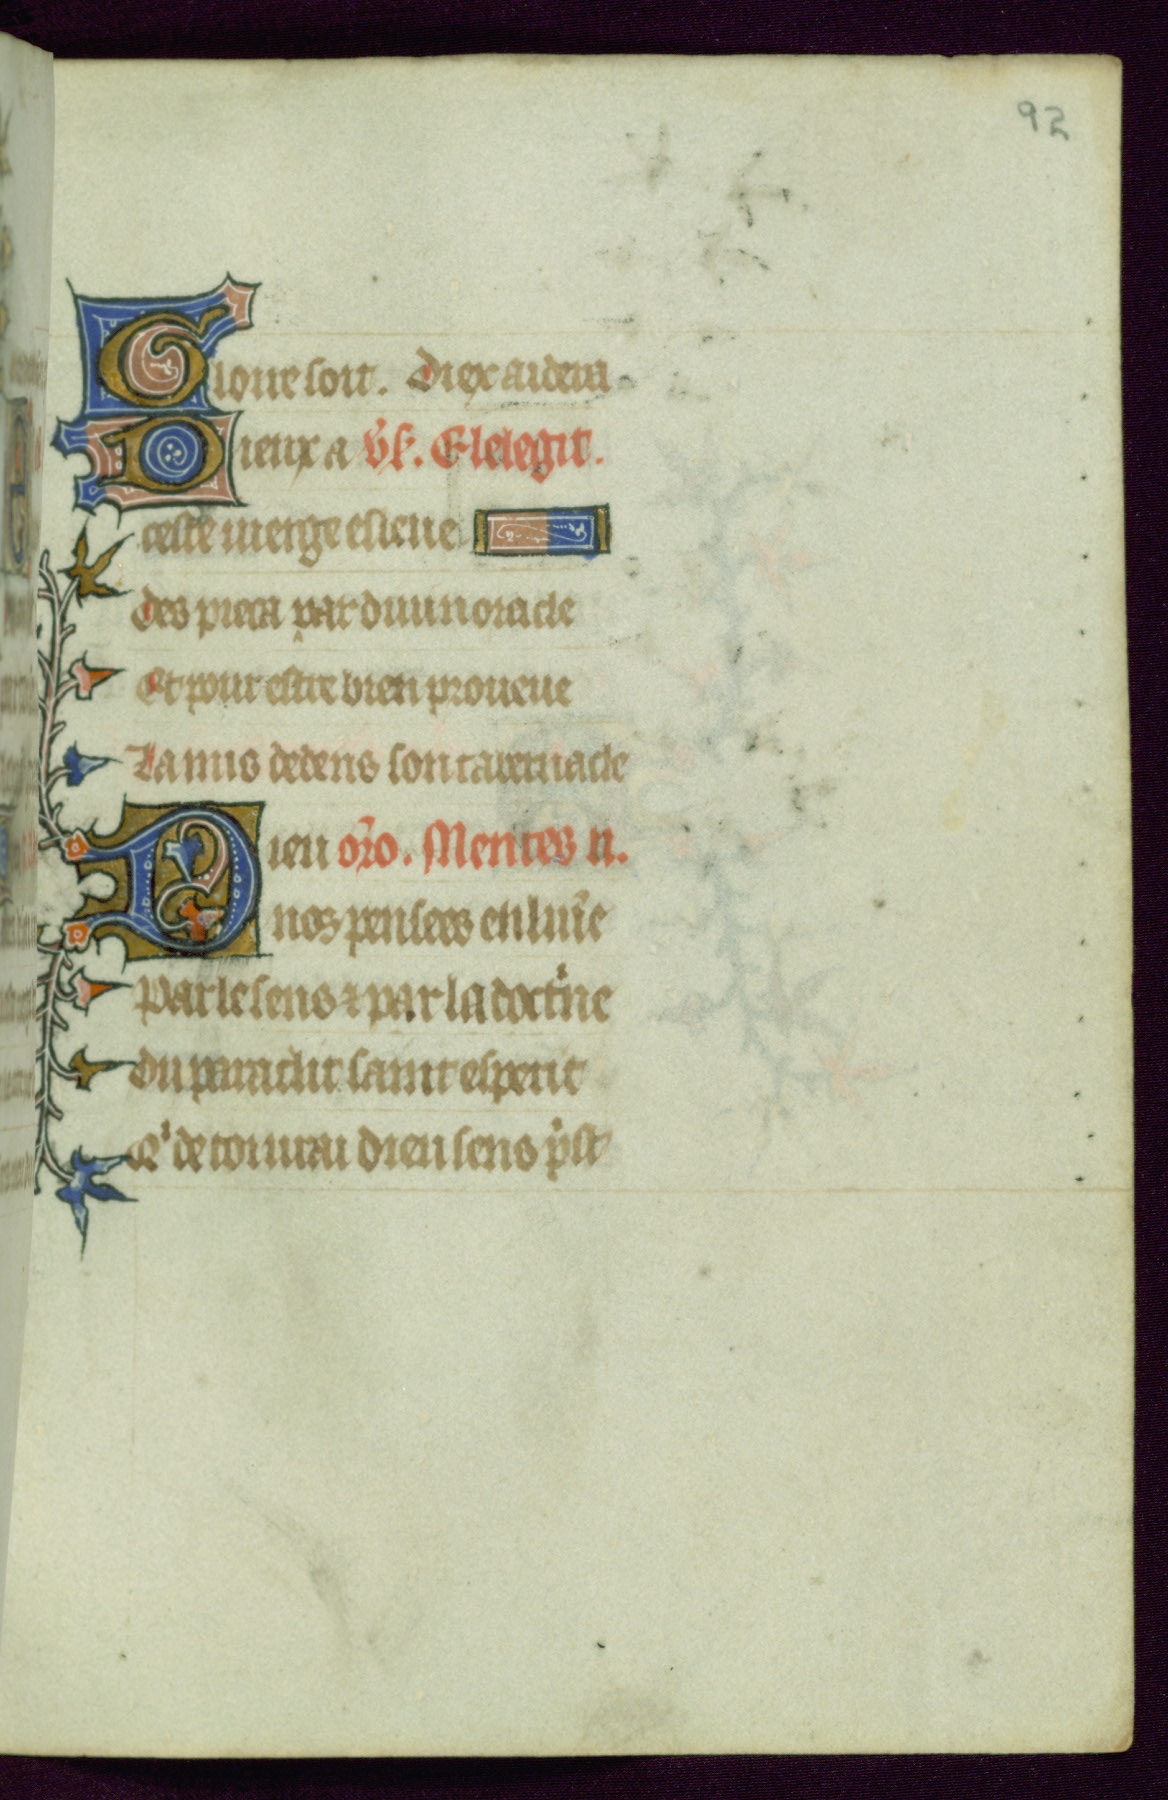 92
Gloire soit. Diex aidem
Dieux a v̄s. Elelegit.
ceste vierge esleue
des pieca par diuin oracle
Et pour estre bien proueue
La mis dedens son tabernacle
Dieu oro. Mentes n.
nos pensees enlum̄e
Par le sens ⁊ par la doctͥne
du paraclit saint esperit
Qͥ de toi vrai dieu sens pͥst